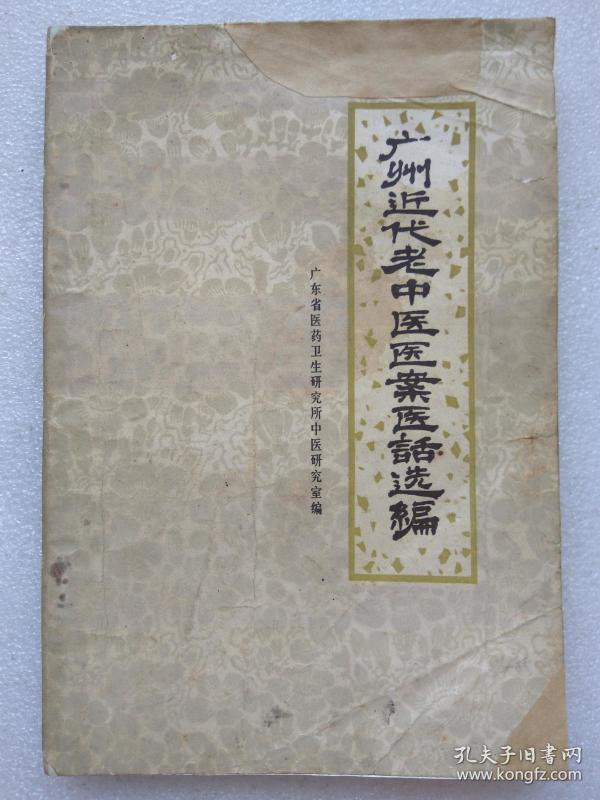 广州近代老中医医案医話选編
广东省医药卫生研究所中医研究室编
孔夫子旧书网
www.kongfz.com